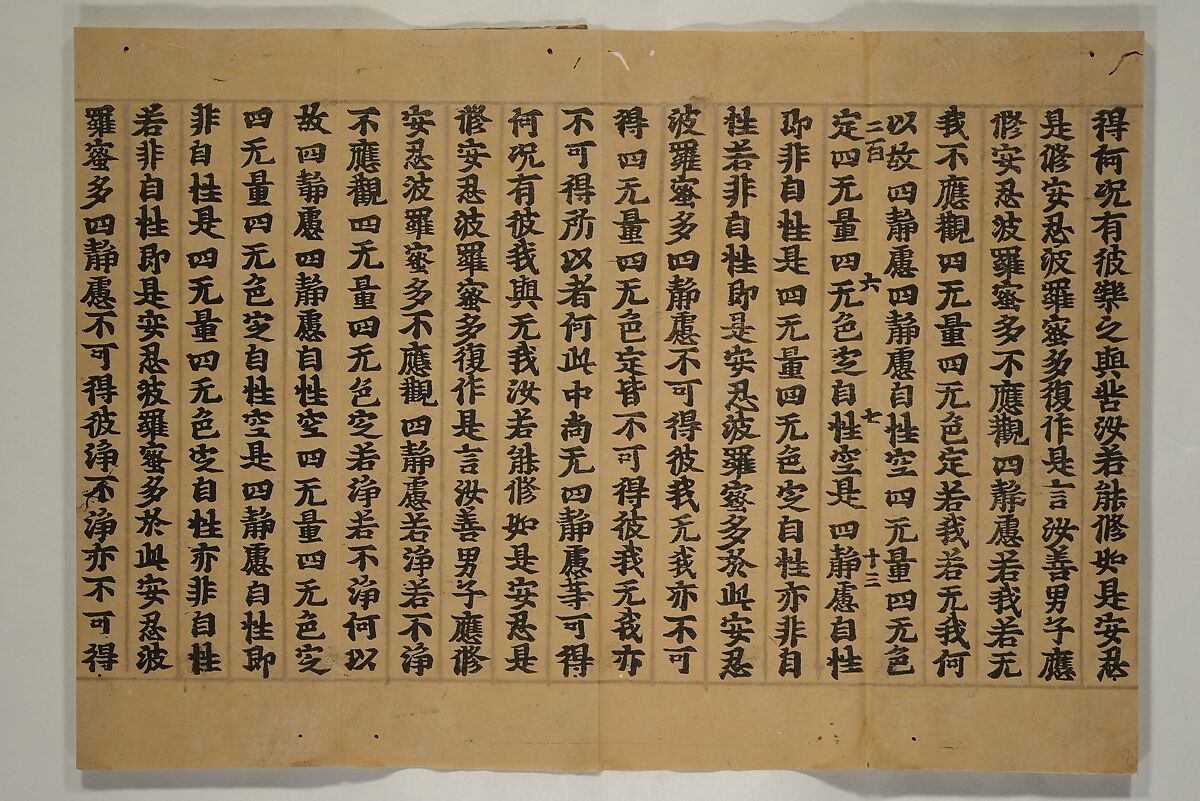 得何况有彼樂之與苦汝若能修如是安忍
是修安忍波羅蜜多復作是言汝善男子應
修安忍波羅蜜多不應觀四静慮若我若无
我不應觀四无量四无色定若我若无我何
以故四静慮四静慮自性空四无量四无色
三百 六 七 十三
定四无量四无色定自性空是四静慮自性
即非自性是四无量四无色定自性亦非自
性若非自性即是安忍波羅蜜多於此安忍
波羅蜜多四静慮不可得彼我无我亦不可
得四无量四无色定皆不可得彼我无我亦
不可得所以者何此中尚无四静慮等可得
何况有彼我與无我汝若能修如是安忍是
修安忍波羅蜜多復作是言汝善男子應修
安忍波羅蜜多不應觀四静慮若浄若不浄
不應觀四无量四无色定若浄若不浄何以
故四静慮四静慮自性空四无量四无色定
四无量四无色定自性空是四静慮自性即
非自性是四无量四无色定自性亦非自性
若非自性即是安忍波羅蜜多於此安忍波
羅蜜多四静慮不可得彼浄不浄亦不可得